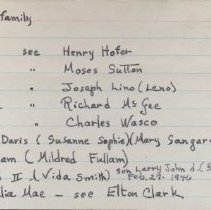 family
see Henry Hofer
" Moses Sutton
" Joseph Lino (Leno)
" Richard McGee
" Charles Wasco
Davis (Susanne Sophie)(Mary Sangar
am (Mildred Fullam)
II (Vida Smith) son Larry John d.(5
Feb. 27, 1946
lia Mae - see Elton Clark